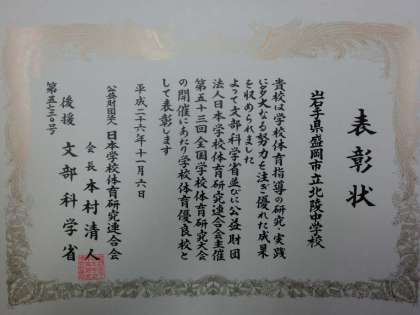 表彰状
岩手県盛岡市立北陵中学校
貴校は学校体育指導の研究・実践
に多大なる努力を注ぎ優れた成果
を収められました
よって文部科学省並びに公益財団
法人日本学校体育研究連合会主催
第五十三回全国学校体育研究大会
の開催にあたり学校体育優良校と
して表彰します
平成二十六年十一月六日
公益財団法人 日本学校体育研究連合会
会長 本村清人
後援 文部科学省
第五七三〇号